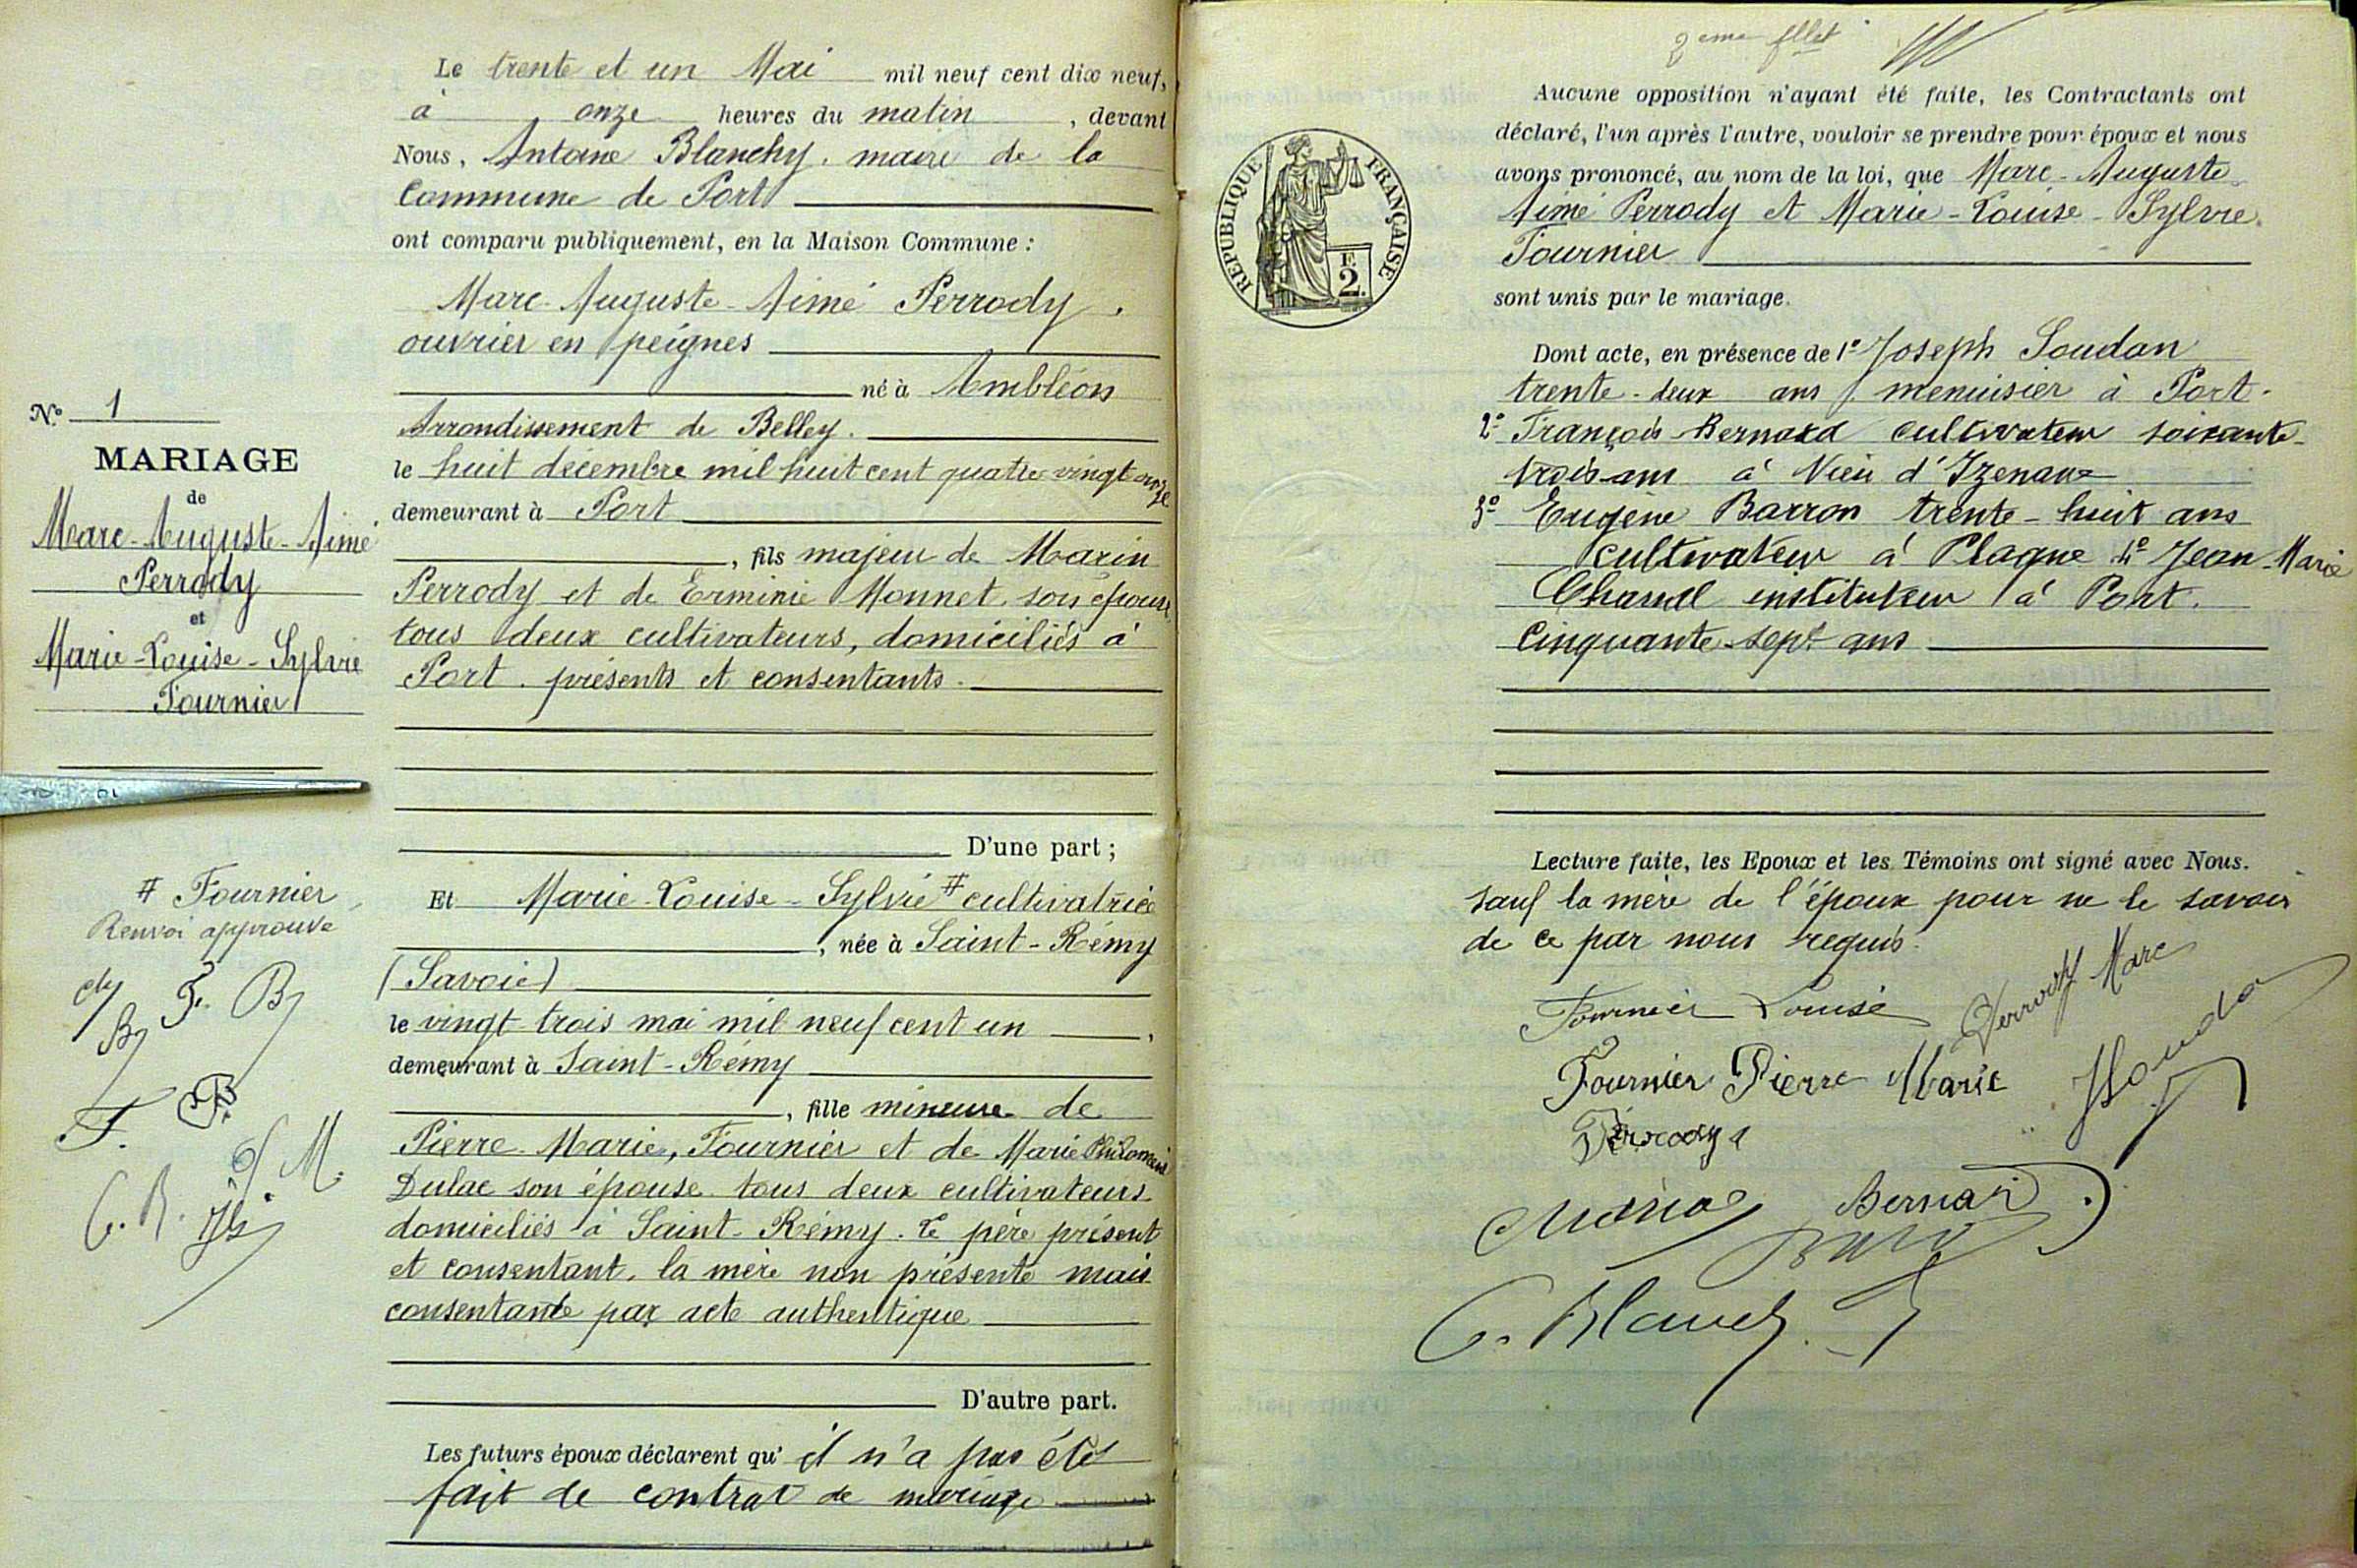 Le trente et un Mai mil neuf cent dix neuf,
à onze heures du matin, devant
Nous, Antoine Blanchy. maire de la
Commune de Port
ont comparu publiquement, en la Maison Commune :
Marc-Auguste-Aimé Perrody.
ouvrier en peignes
né à Ambléon
Arrondissement de Belley.
le huit décembre mil huit cent quatre vingt onze
demeurant à Port
, fils majeur de Marin
Perrody et de Erminie Monnet son épouse
tous deux cultivateurs, domiciliés à
Port. présents et consentants.
D'une part ;
Nº 1
MARIAGE
de
Marc-Auguste-Aimé
Perrody
et
Marie-Louise-Sylvie
Fournier
# Fournier
Renvoi approuvé
By F. By
F.
M.
Et Marie-Louise-Sylvie # cultivatrice
, née à Saint-Rémy
(Savoie)
le vingt trois mai mil neuf cent un,
demeurant à Saint-Rémy
, fille mineure de
Pierre-Marie, Fournier et de Marie Philomène
Dulac son épouse tous deux cultivateurs
domiciliés à Saint-Rémy. Le père présent
et consentant, la mère non présente mais
consentante par acte authentique
D'autre part.
Les futurs époux déclarent qu' il n'a pas été
fait de contrat de mariage
2eme fllet
RÉPUBLIQUE FRANÇAISE
F.
2.
Aucune opposition n'ayant été faite, les Contractants ont
déclaré, l'un après l'autre, vouloir se prendre pour époux et nous
avons prononcé, au nom de la loi, que Marc-Auguste
Aimé Perrody et Marie-Louise-Sylvie
Fournier
sont unis par le mariage.
Dont acte, en présence de 1º Joseph Soudan
trente-deux ans menuisier à Port.
2º François Bernard cultivateur soixante-
trois ans à Vieu d'Izenave
3º Eugène Barron trente-huit ans
cultivateur à Plagne 4º Jean-Marie
instituteur à Port.
cinquante-sept ans
Lecture faite, les Epoux et les Témoins ont signé avec Nous.
sauf la mère de l'époux pour ne le savoir
de ce par nous requis.
Fournier Louise Perrody Marc
Fournier Pierre Marie
Perrody
Bernard
Blanchy